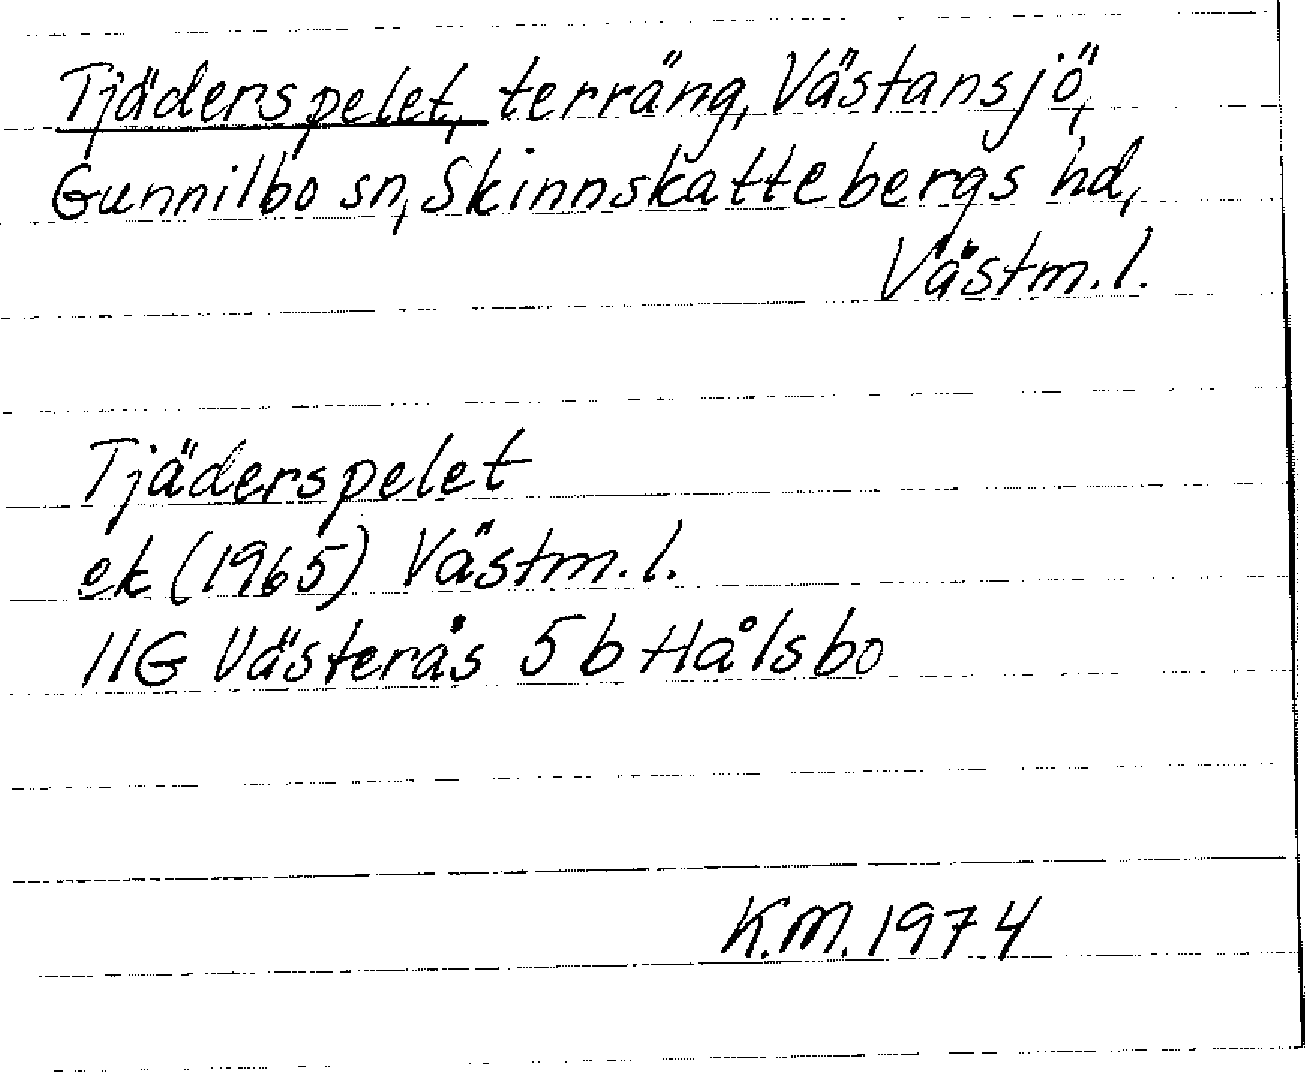 Tjäderspelet, terräng, Västansjö,
Gunnilbo sn, Skinnskattebergs hd,
Västm. l.
Tjäderspelet
ek (1965) Västm. l.
11G Västerås 5b Hålsbo
K.M. 1974